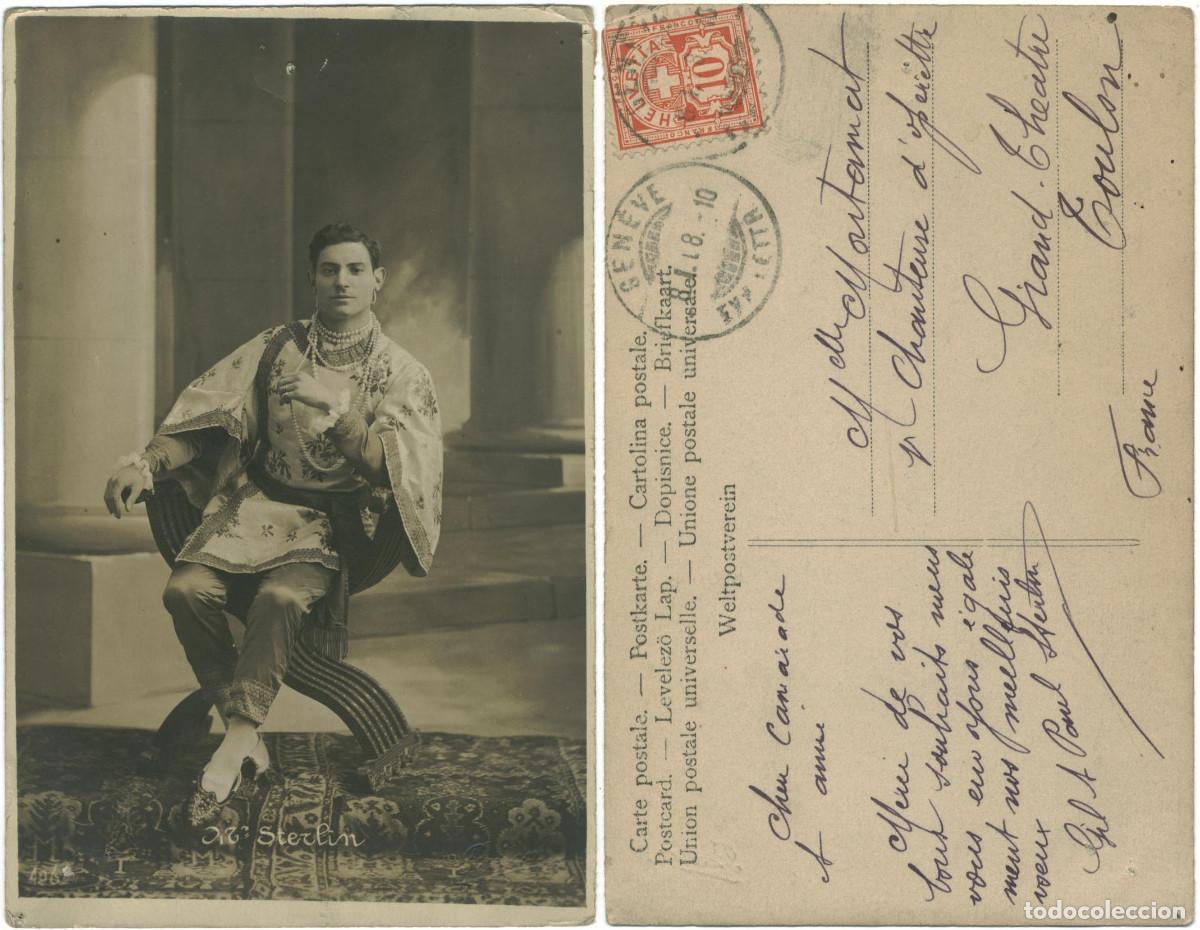 Mr Sterlin
FRANCO
HELVETIA
10
FRANCO
GENÈVE
LETTR
Carte postale. — Postkarte. — Cartolina postale.
Postcard. — Levelezö Lap. — Dopisnice. — Briefkaart.
Union postale universelle. — Unione postale universale.
Weltpostverein
Melle Montamat
Chanteuse d'opérette
Grand-Théatre
Toulon
France
Cher Camarade
et amie
Merci de vos
bons souhaits nous
vous envoyons égale
ment nos meilleurs
voeux
Gil et Paul Sterlin
todocoleccion